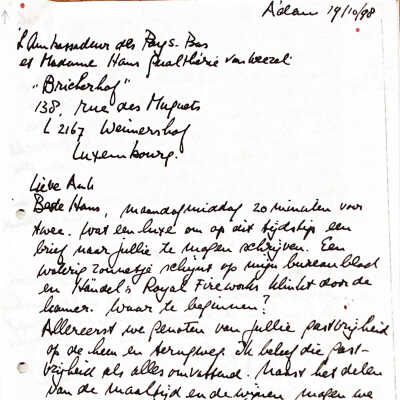 A'dam 19/10/98
L'Ambassadeur des Pays-Bas
et Madame Hans Gualthérie van Weezel
"Bricherhof"
138, rue des Muguets
L 2167 Weimershof
Luxembourg.
Lieve Anh
Beste Hans, maandagmiddag 20 minuten voor
twee. Wat een luxe om op dit tijdstip een
brief naar jullie te mogen schrijven. Een
waterig zonnetje schijnt op mijn bureaublad
en Händel's Royal Fireworks klinkt door de
kamer. Waar te beginnen?
Allereerst we genoten van jullie gastvrijheid
op de heen en terugweg. Ik beleef die gast-
vrijheid als alles omvattend. Naast het delen
van de maaltijd en de wijnen mogen we